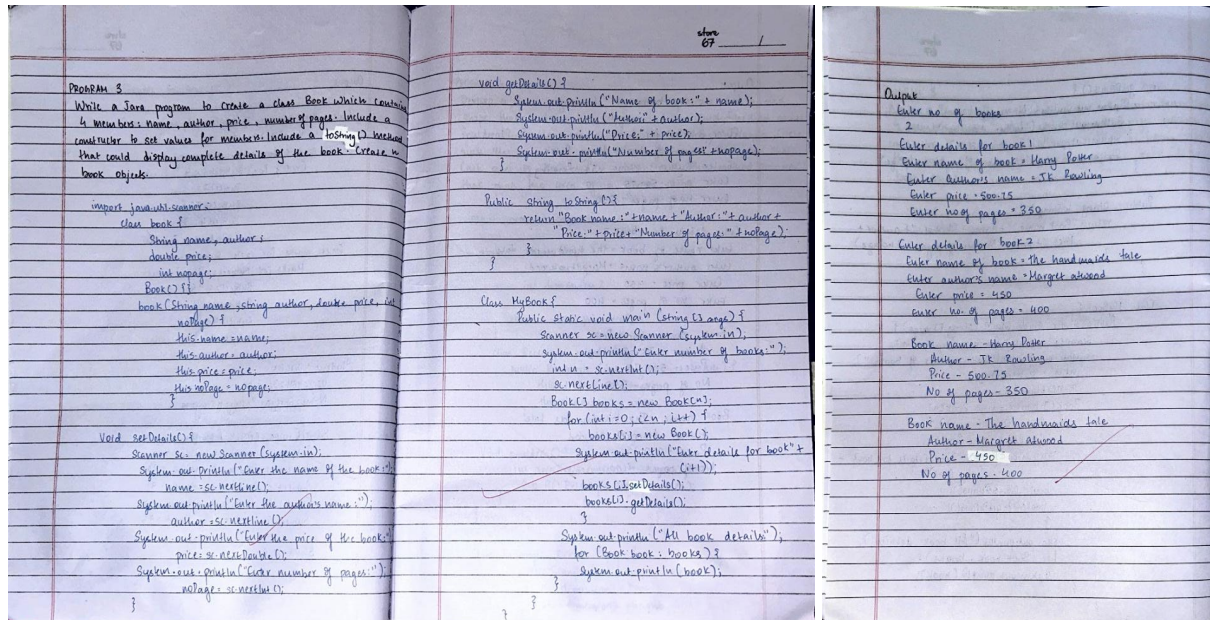 PROGRAM 3
Write a Java program to create a class Book which contains
4 members: name, author, price, number of pages. Include a
constructor to set values for members. Include a toString() method
that could display complete details of the book. Create n
book objects.
import java.util.scanner;
class book {
String name, author;
double price;
int nopage;
Book() {}
book (String name, string author, double price, int
noPage) {
this.name = name;
this.author = author;
this.price = price;
this.noPage = nopage;
}
Void setDetails() {
Scanner sc = new Scanner (system.in);
System.out.Println ("Enter the name of the book:");
name = sc.nextline();
System.out.println ("Enter the author's name:");
author = sc.nextline ();
System.out.println ("Enter the price of the book:"
price = sc.nextDouble ();
System.out.println ("Enter number of pages:");
noPage = sc.nextInt ();
}
store
67 /
void getDetails() {
System.out.println ("Name of book:" + name);
System.out.println ("Author:" + author);
System.out.println ("Price:" + price);
System.out.println ("Number of pages" + nopage);
}
Public String toString () {
return "Book name:" + name + "Author:" + author +
"Price:" + price + "Number of pages:" + noPage);
}
}
Class MyBook {
Public static void main (string [] args) {
Scanner sc = new Scanner (system.in);
System.out.println ("Enter number of books:");
int n = sc.nextInt ();
sc.nextLine ();
Book [] books = new Book [n];
for (int i=0; i<n; i++) {
books [i] = new Book ();
System.out.println ("Enter details for book" +
(i+1));
books [i].setDetails();
books [i].getDetails();
}
System.out.println ("All book details:");
for (Book book : books) {
System.out.println (book);
}
}
}
Output
Enter no of books
2
Enter details for book1
Enter name of book = Harry Potter
Enter author's name = JK Rowling
Enter price = 500.75
Enter no of pages = 350
Enter details for book2
Enter name of book = the handmaids tale
Enter author's name = Margret atwood
Enter price = 450
Enter no. of pages = 400
Book name - Harry Potter
Author - JK Rowling
Price - 500.75
No of pages - 350
Book name - The handmaids tale
Author - Margret atwood
Price - 450
No of pages - 400